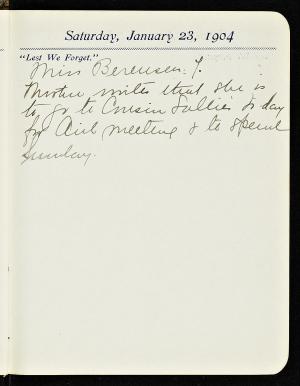 Saturday, January 23, 1904
"Lest We Forget."
Miss Berensen. T.
Mother writes that she is
to go to Cousin Sallies to day
for Aid meeting & to spend
Sunday.